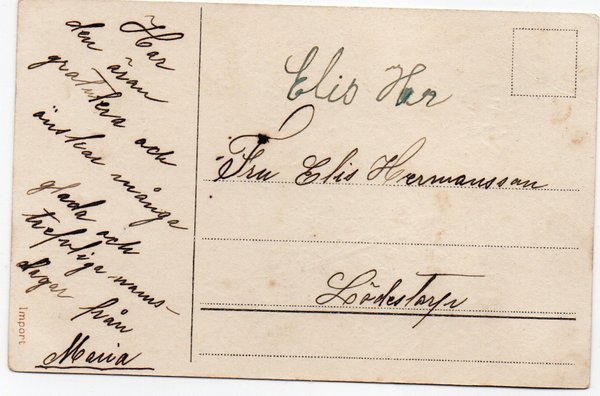 Har
den äran
gratulera och
önskar många
glada och
trefvliga nams-
dagar från
Maria
Import
Elis Her
Fru Elis Hermansson
Lödestorp